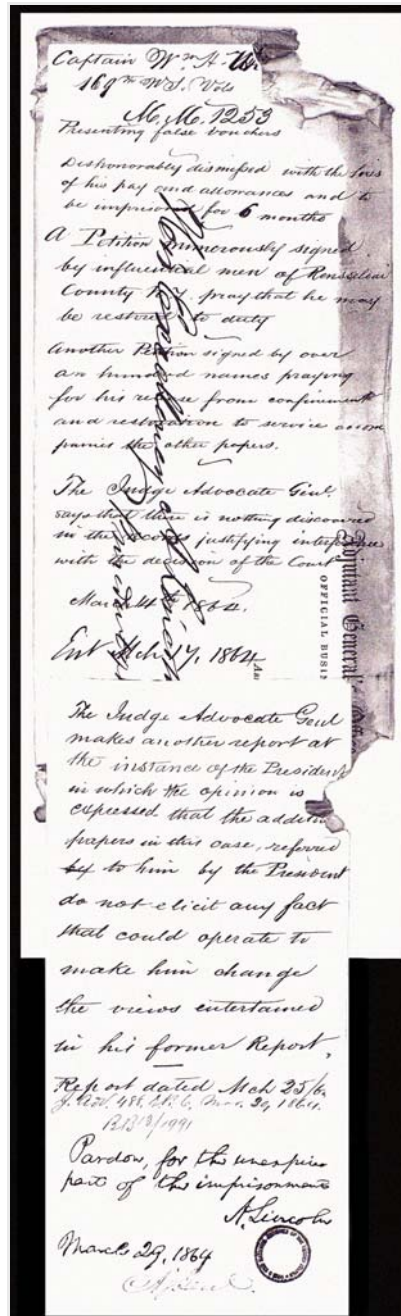 Captain Wm H.
169th N.Y. Vols
M.M. 1253
Presenting false vouchers
Dishonorably dismissed with the loss
of his pay and allowances and to
be imprisoned for 6 months
A Petition numerously signed
by influential men of Rensselear
County N.Y. pray that he may
be restored to duty
Another Petition signed by over
an hundred names praying
for his release from confinement
and restoration to service accom
panies the other papers.
The Judge Advocate Genl.
says that there is nothing discovered
in the records justifying interference
with the decision of the Court
March 4th 1864.
Ent Mch 17, 1864
Adjutant General's Office
OFFICIAL BUSI
The Judge Advocate Genl
makes another report at
the instance of the President
in which the opinion is
expressed that the addition
papers in this case, referred
by to him by the President
do not elicit any fact
that could operate to
make him change
the views entertained
in his former Report.
Report dated Mch 25/64
Mar. 29, 1864.
Pardon, for the unexpired
part of the imprisonment
A. Lincoln
March 29, 1864